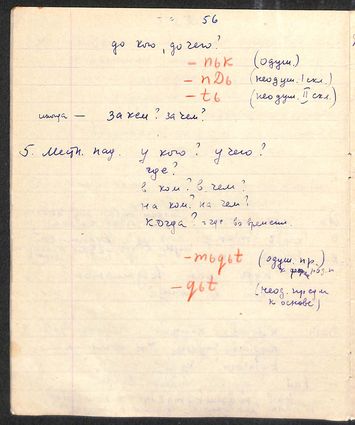 56
до кого, до чего?
- пьк (одуш.)
- пДь (неодуш. I скл.)
- tь (неодуш. II скл.)
иногда - За кем? за чем?
5. Местн. пад. у кого? у чего?
где?
в ком? в чем?
на ком? на чем?
когда? где во времени
- тьgьt (одуш. пр.)
к
- gьt (неод.
к основе)